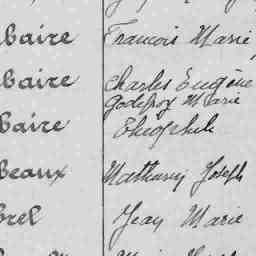 baire François Marie
baire Charles Eugène
Godefroy Marie
baire Théophile
beaux Mathurin Joseph
brel Jean Marie